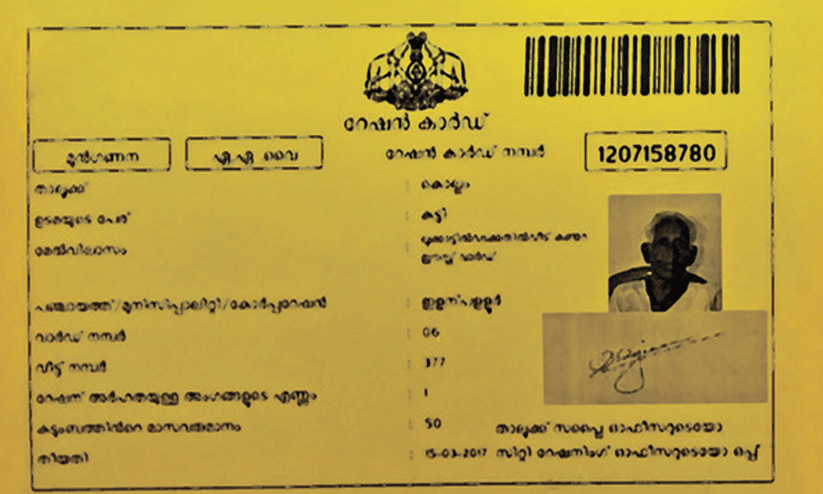 റേഷൻ കാർഡ്
മുൻഗണന എ.എ വൈ റേഷൻ കാർഡ് നമ്പർ 1207158780
താലൂക്ക് : കൊല്ലം
ഉടമയുടെ പേര് : കുട്ടി
മേൽവിലാസം :
ഈസ്റ്റ് വാർഡ്
പഞ്ചായത്ത്/മുനിസിപ്പാലിറ്റി/കോർപ്പറേഷൻ : ഇളമ്പള്ളൂർ
വാർഡ് നമ്പർ : 06
വീട്ട് നമ്പർ : 377
റേഷന് അർഹതയുള്ള അംഗങ്ങളുടെ എണ്ണം : 1
കുടുംബത്തിൻറെ മാസവരുമാനം : 50 താലൂക്ക് സപ്ലൈ ഓഫീസറുടെയോ
തിയതി : 15-03-2017 സിറ്റി റേഷനിംഗ് ഓഫീസറുടെയോ ഒപ്പ്